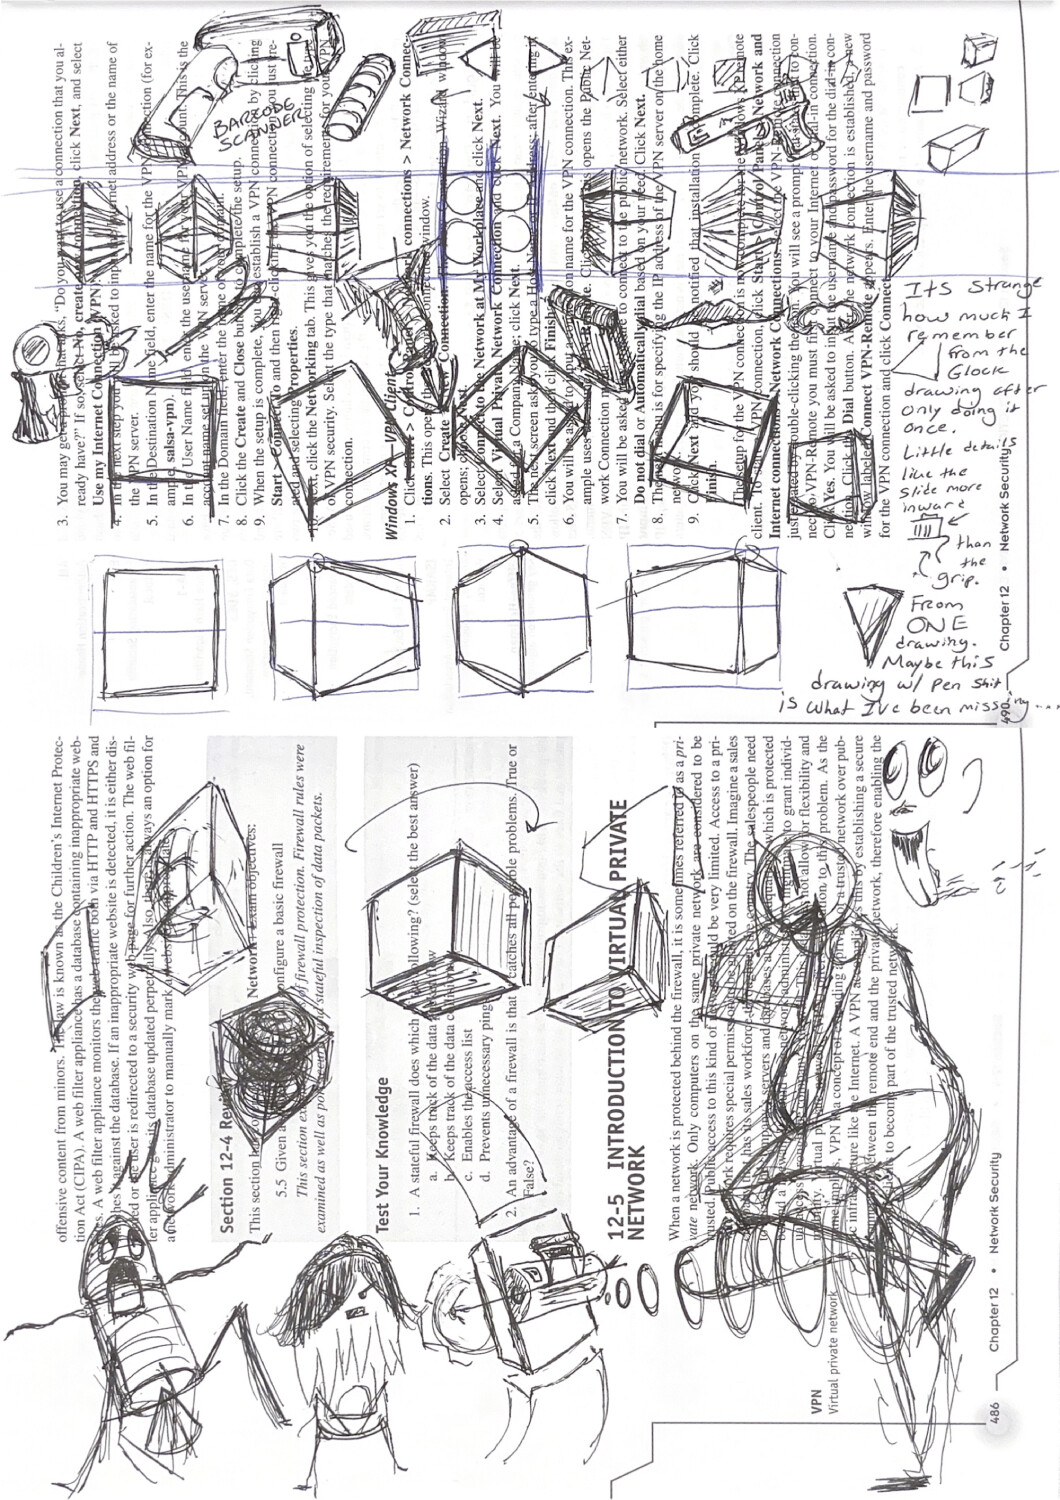 offensive content from minors. The law is known as the Children's Internet Protec-
tion Act (CIPA). A web filter appliance has a database containing inappropriate web-
A web filter appliance monitors the web traffic both via HTTP and HTTPS and
against the database. If an inappropriate website is detected, it is either dis-
or the user is redirected to a security web page for further action. The web fil-
ter appliance gets its database updated perpetually. Also, there is always an option for
a network administrator to manually mark a website
Section 12-4 Review
This section has Network+ Exam objectives:
5.5 Given a configure a basic firewall
This section of firewall protection. Firewall rules were
examined as well as stateful inspection of data packets.
Test Your Knowledge
1. A stateful firewall does which following? (select the best answer)
a. Keeps track of the data
b. Keeps track of the data
c. Enables the access list
d. Prevents unnecessary ping
2. An advantage of a firewall is that catches all possible problems. True or
False?
12-5 INTRODUCTION TO VIRTUAL PRIVATE
NETWORK
When a network is protected behind the firewall, it is sometimes referred to as a pri-
vate network. Only computers on the same private network are considered to be
trusted. Public access to this kind of network would be very limited. Access to a pri-
work requires special permission on the firewall. Imagine a sales
has its sales workforce country. The salespeople need
servers and databases which is protected
network administrator to grant individ-
not allow for flexibility and
solution to this problem. As the
VPN is a concept of extending a private or a trusted network over pub-
lic infrastructure like the Internet. A VPN accomplishes this by establishing a secure
between the remote end and the private network, therefore enabling the
to become part of the trusted network.
VPN
Virtual private network
486
Chapter 12 • Network Security
3. You may get "Do you want to use a connection that you al-
ready have?" If so, select No, create a new connection, click Next, and select
Use my Internet Connection (VPN).
4. In the next step you will be asked to input the Internet address or the name of
the VPN server.
5. In the Destination Name field, enter the name for the VPN connection (for ex-
ample, salsa-vpn).
6. In the User Name field, enter the username for your VPN account. This is the
account name set up on the VPN server.
7. In the Domain field, enter the name of your domain.
8. Click the Create and Close button to complete the setup.
9. When the setup is complete, you can establish a VPN connection by clicking
Start > Connect to and then right-clicking the VPN connection you just cre-
ated and selecting Properties.
10. Next, click the Networking tab. This gives you the option of selecting the type
of VPN security. Select the type that matches the requirements for your VPN
connection.
Windows XP—VPN Client
1. Click Start > Control connections > Network Connec-
tions. This opens the window.
2. Select Create New Connection. Wizard window
opens; click Next.
3. Select Connect to the Network at My Workplace and click Next.
4. Select Virtual Private Network Connection and click Next. You will be
asked for a Company Name; click Next.
5. The next screen asks you to type a Host Name or IP Address; after entering it
click Next and then click Finish.
6. You will be asked to input a connection name for the VPN connection. This ex-
ample uses Click Next. This opens the Public Net-
work Connection
7. You will be asked to connect to the public network. Select either
Do not dial or Automatically dial based on your need. Click Next.
8. The next menu is for specifying the IP address of the VPN server on the home
network.
9. Click Next and you should be notified that installation is complete. Click
Finish.
The setup for the VPN connection is now complete for the Windows XP remote
client. To start the VPN connection, click Start > Control Panel > Network and
Internet connections > Network Connections. Select the VPN-Remote connection
just created by double-clicking the icon. You will see a prompt
nect to VPN-Remote you must first connect to your Internet or dial-in connection.
Click Yes. You will be asked to input the username and password for the dial-in con-
nection. Click the Dial button. After the network connection is established, a new
window labeled Connect VPN-Remote appears. Enter the username and password
for the VPN connection and click Connect.
490
Chapter 12 • Network Security
BARCODE
SCANNER
Its strange
how much I
remember
from the
Glock
drawing after
only doing it
once.
Little details
like the
slide more
inward
than
the
grip.
From
ONE
drawing.
Maybe this
drawing w/ Pen shit
is what I've been missing...